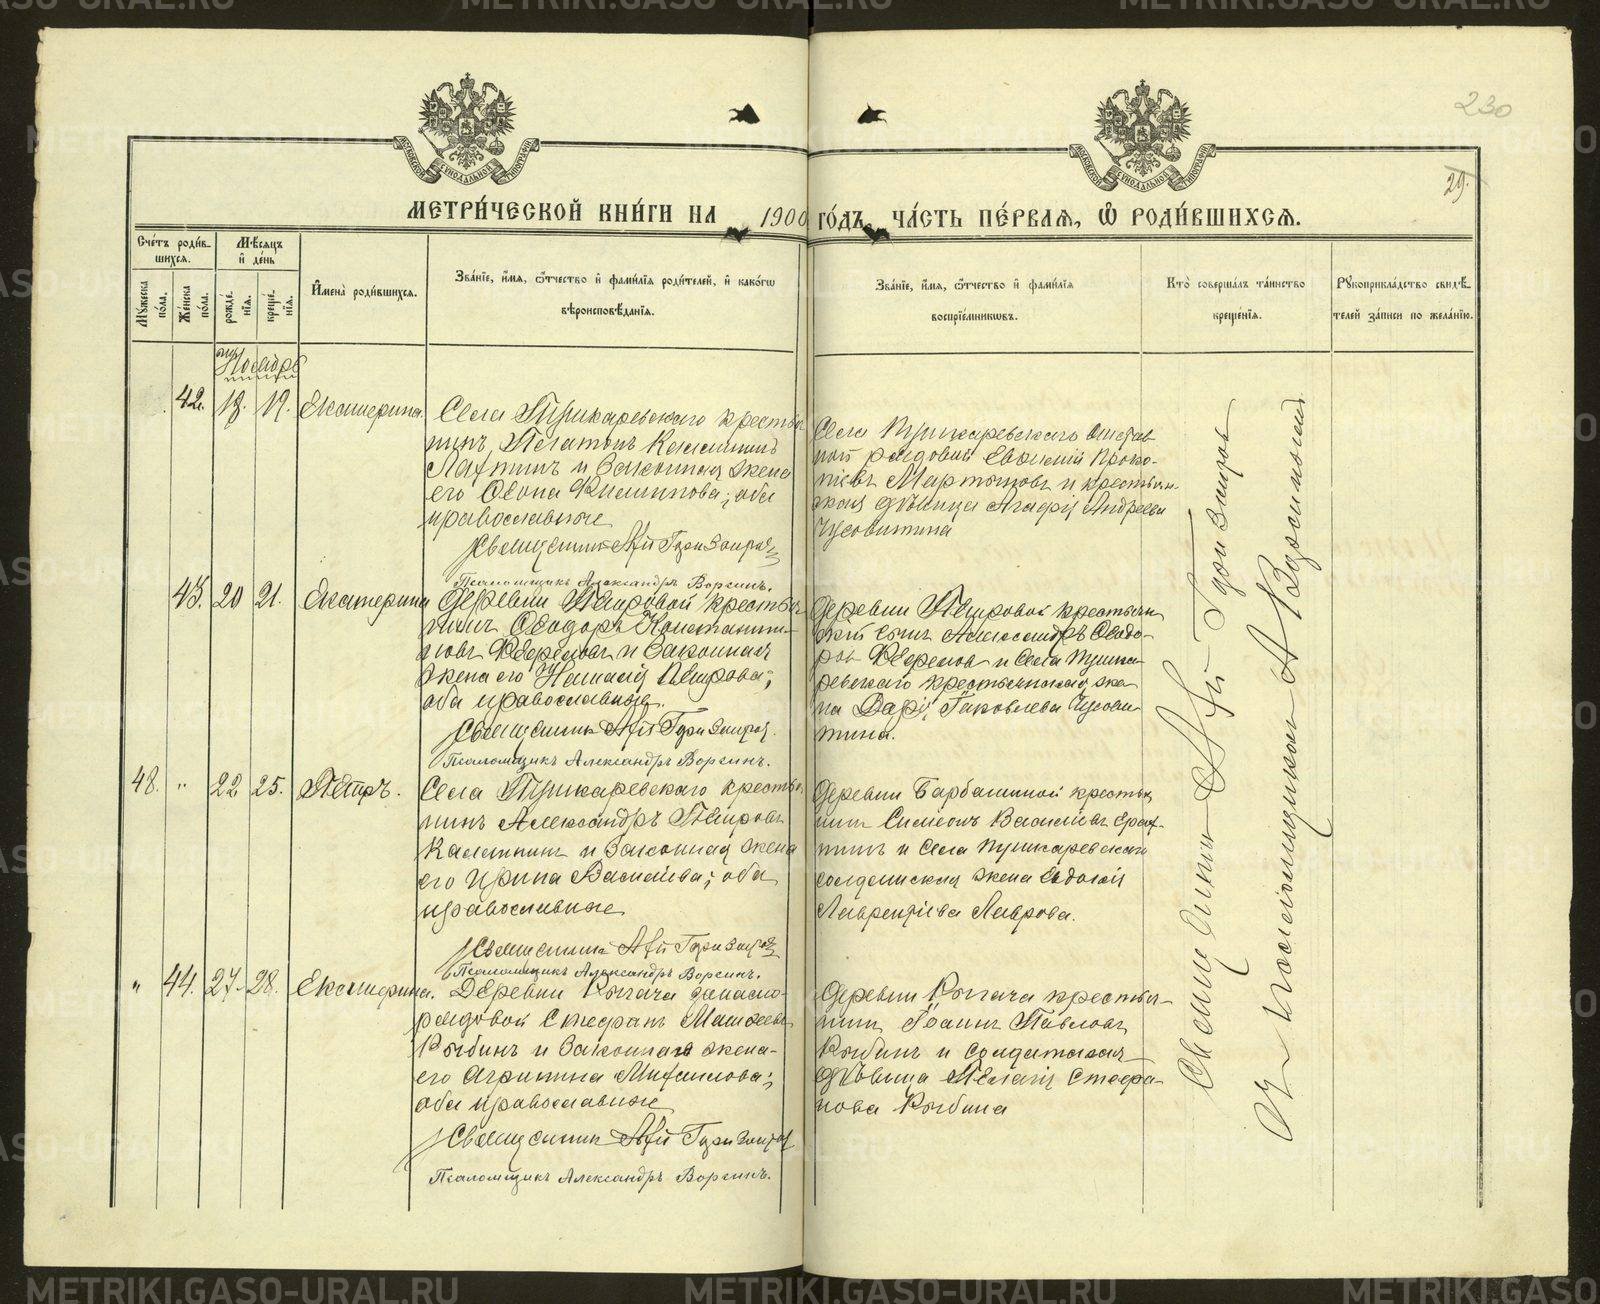 METRIKI.GASO-URAL.RU
230
29.
МОСКОВСКОЙ СѴНОДАЛЬНОЙ ТИПОГРАФІИ
МЕТРИ́ЧЕСКОЙ КНИ́ГИ НА 1900 ГО́ДЪ, ЧА́СТЬ ПЕ́РВАЯ, Ѽ РОДИ́ВШИХСЯ.
Сче́тъ роди́вшихся.
Мѣ́сяцъ и҆ де́нь
Му́жеска по́ла.
Же́нска по́ла.
рожде́нїя.
креще́нїя.
И҆мена̀ роди́вшихся.
Зва́нїе, и҆́мя, ѻ҆́тчество и҆ фами́лїя роди́телей, и҆ како́гѡ
вѣроисповѣ́данїя.
Зва́нїе, и҆́мя, ѻ҆́тчество и҆ фами́лїя
воспрїе́мникѡвъ.
Кто̀ соверша́лъ та́инство
креще́нїя.
Рꙋкоприкла́дство свидѣ́-
телей за́писи по жела́нїю.
Ноябрь
42. 18. 19. Екатерина.
Села Пушкаревскаго крестья
нинъ Платонъ
и законная жена
его Филиппова; оба
православные
Священник
Псаломщикъ Александръ Ворсинъ.
Села Пушкаревскаго отстав
ной рядовой Евфимій Проко-
піевъ Мартыновъ и крестьян-
ская дѣвица Агафія Андреева
Чусовитина
43. 20 21. Екатерина
Деревни Петровой крестья
нинъ Ѳеодоръ Константи-
новъ и законная
жена его Наталія Петрова;
оба православные.
Священник
Псаломщикъ Александръ Ворсинъ.
Деревни Петровой крестьян
скій сынъ Александръ Ѳеодо-
ровъ и села Пушка
ревскаго крестьянская же
на Дарія Іаковлева Чусови
тина.
48. " 22 25. Петръ.
Села Пушкаревскаго крестья
нинъ Александръ Петровъ
Калининъ и законная жена
его Ирина Васильева; оба
православные
Священник
Псаломщикъ Александръ Ворсинъ.
Деревни Барбашиной крестья
нинъ Симеонъ Васильевъ
и села Пушкаревскаго
солдатская жена Евдокія
Лаврентіева Лаврова.
" 44. 27. 28. Екатерина.
Деревни Рычача запасно-
рядовой Стефанъ Матѳеевъ
Рыбинъ и законная жена
его Агрипина Михаилова;
оба православные
Священник
Псаломщикъ Александръ Ворсинъ.
Деревни Рычача крестья-
нинъ Іоаннъ Павловъ
Рыбинъ и солдатская
дѣвица Пелагія Стефа-
нова Рыбина
Священник